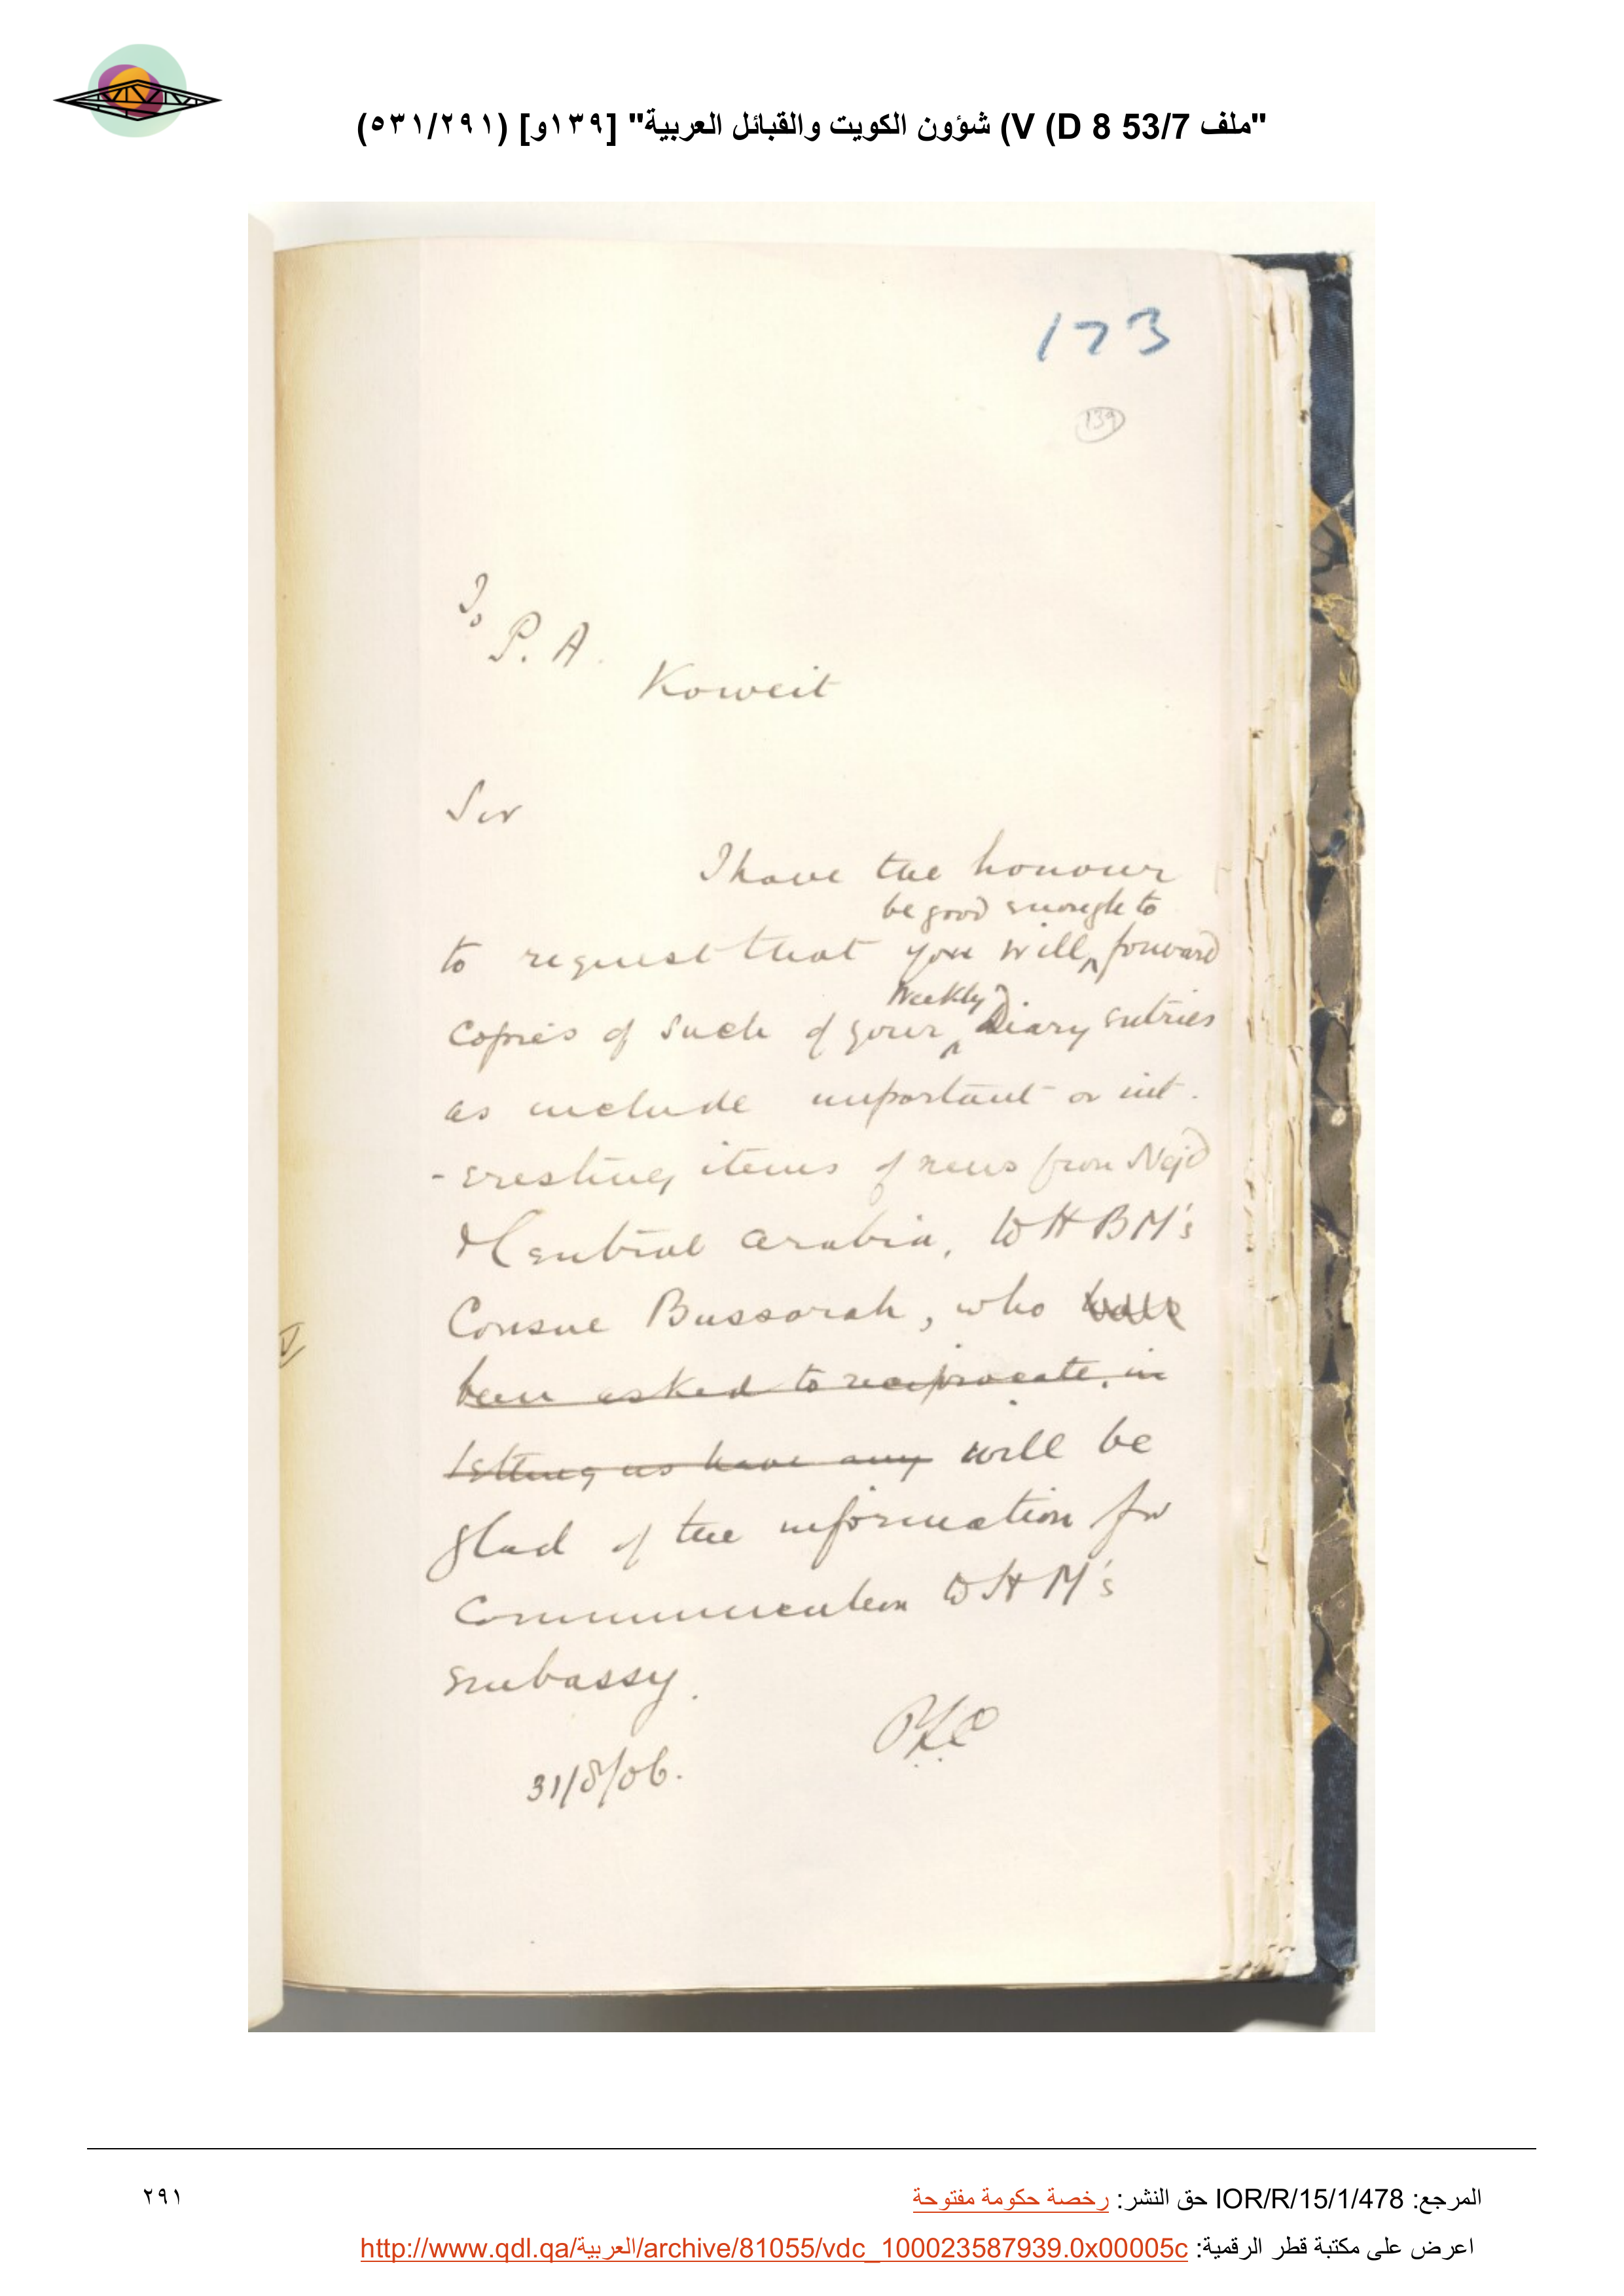 "ملف 53/7 D 8) V) شؤون الكويت والقبائل العربية" [١٣٩و] (٥٣١/٢٩١)
173
139
To
P. A.
Koweit
Sir
I have the honour
be good enough to
to request that you will ^ forward
Weekly
copies of such of your ^ Diary entries
as include important or int-
-eresting items of news from Nejd
& Central Arabia, to H B M's
Consul Bussorah, who have
been asked to reciprocate, in
letting us have any will be
glad of the information for
Communication to H M's
Embassy.
PZC
31/8/06.
المرجع: IOR/R/15/1/478 حق النشر: رخصة حكومة مفتوحة
٢٩١
اعرض على مكتبة قطر الرقمية: http://www.qdl.qa/العربية/archive/81055/vdc_100023587939.0x00005c